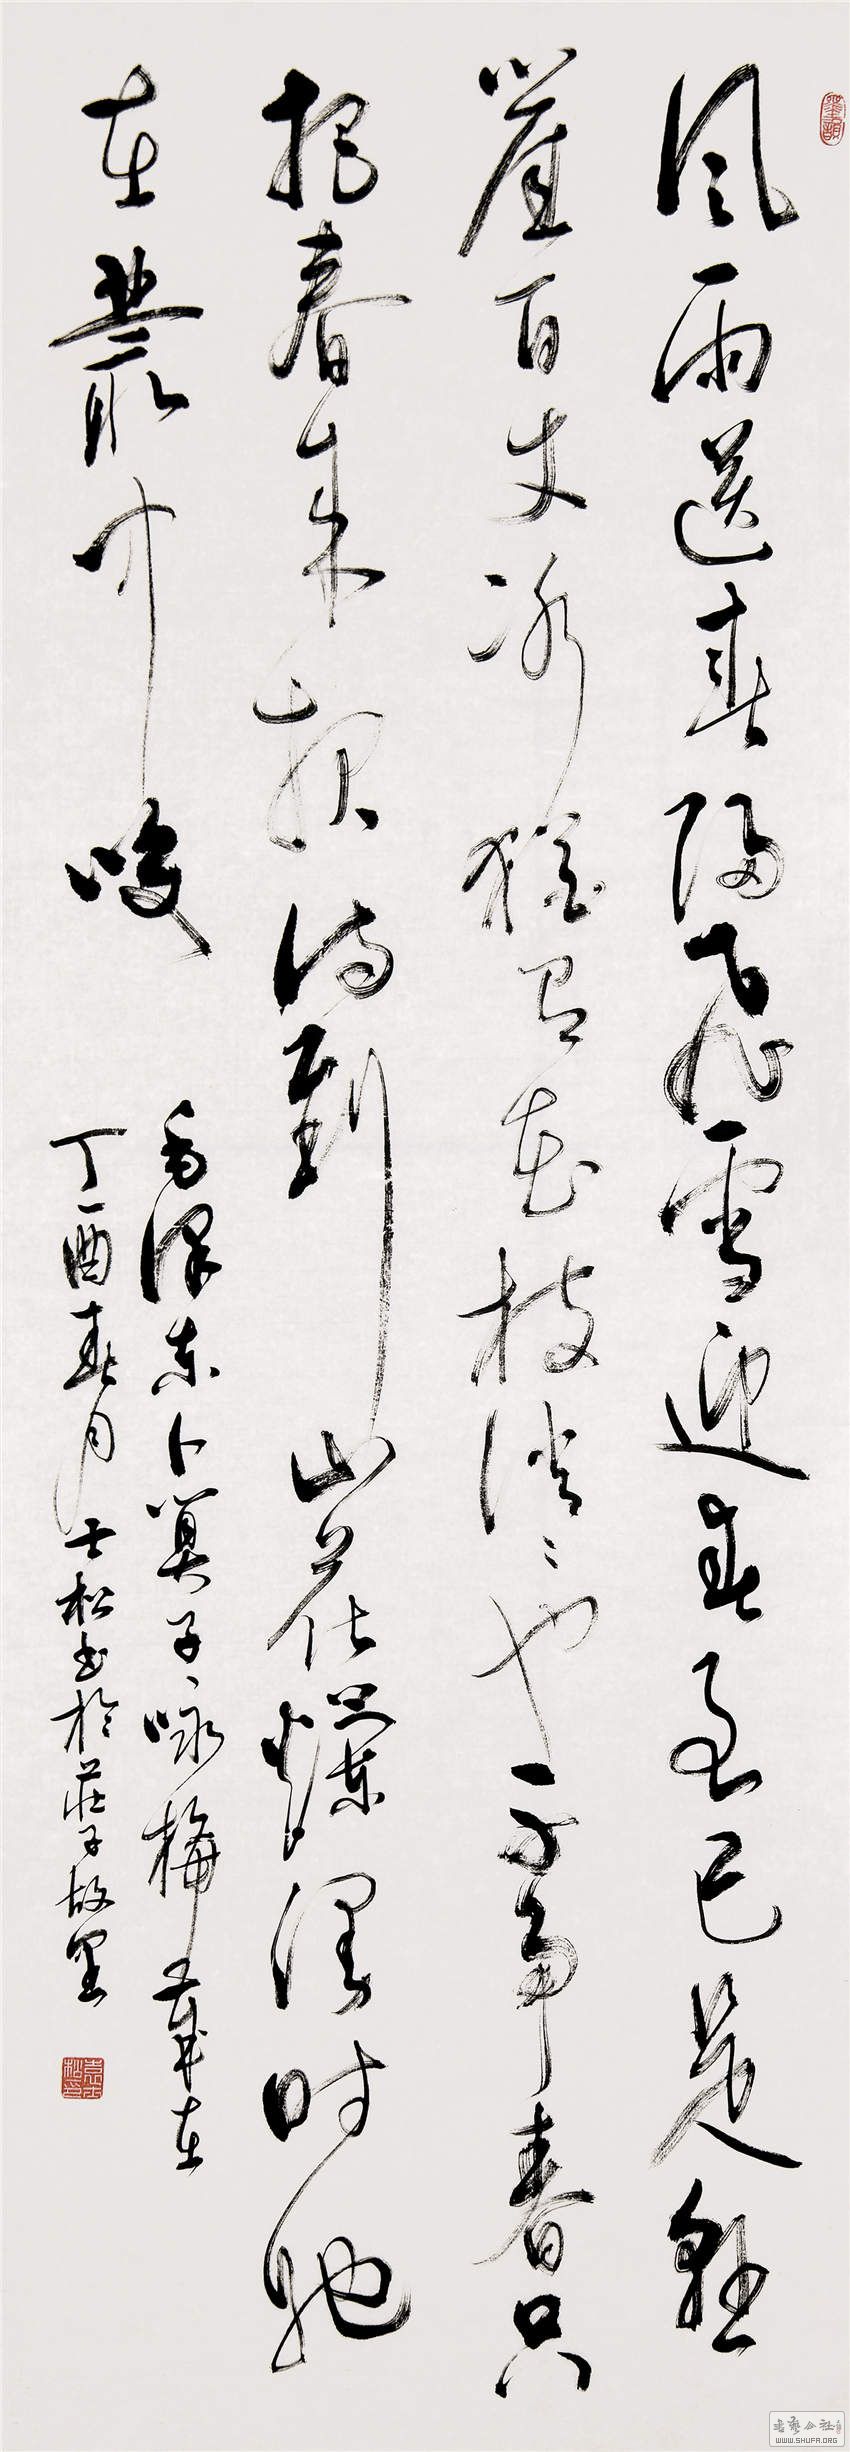 风雨送春歸飛雪迎春到已是懸
崖百丈冰猶有花枝俏〻也不爭春只
把春来报待到山花爛漫时她
在叢中咲
毛澤東卜算子咏梅 歲在
丁酉春月士松书於莊子故里
袁士松印
WWW.SHUFA.ORG